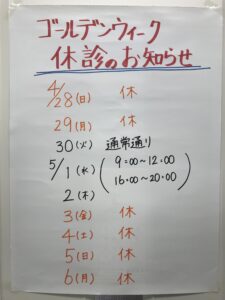 ゴールデンウィーク
休診のお知らせ
4/28(日) 休
29(月) 休
30(火) 通常通り
5/1(水) (9:00~12:00
2(木) 16:00~20:00)
3(金) 休
4(土) 休
5(日) 休
6(月) 休